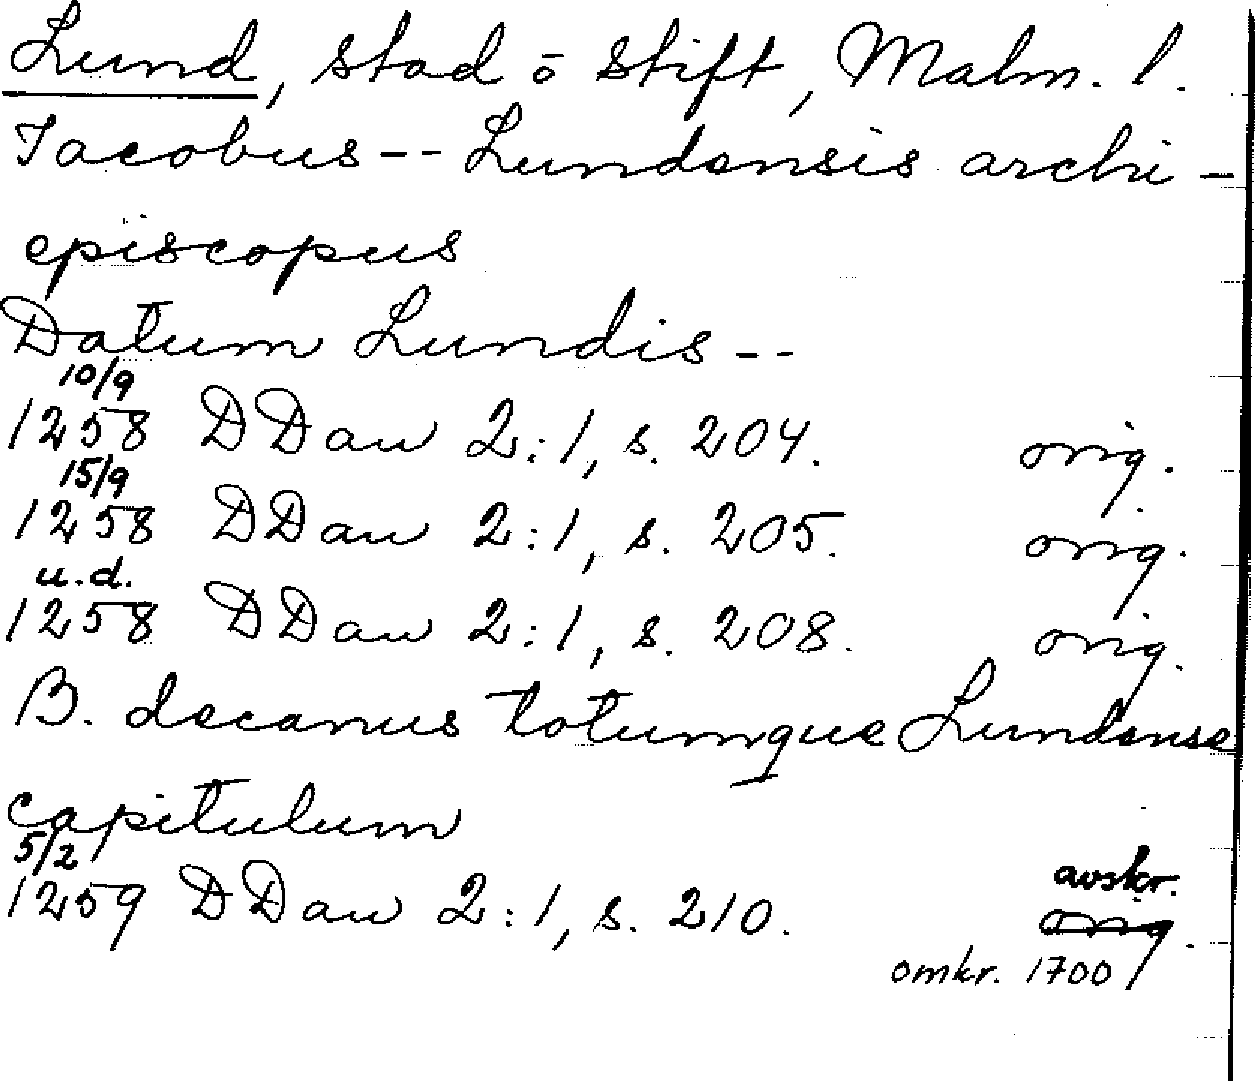 Lund, stad o stift, Malm. l.
Jacobus -- Lundensis archi-
episcopus
Datum Lundis --
10/9
1258 DDan 2:1, s. 204. orig.
15/9
1258 DDan 2:1, s. 205. orig.
u.d.
1258 DDan 2:1, s. 208. orig.
B. decanus totumque Lundense
capitulum
5/2 avskr.
1259 DDan 2:1, s. 210. orig.
omkr. 1700